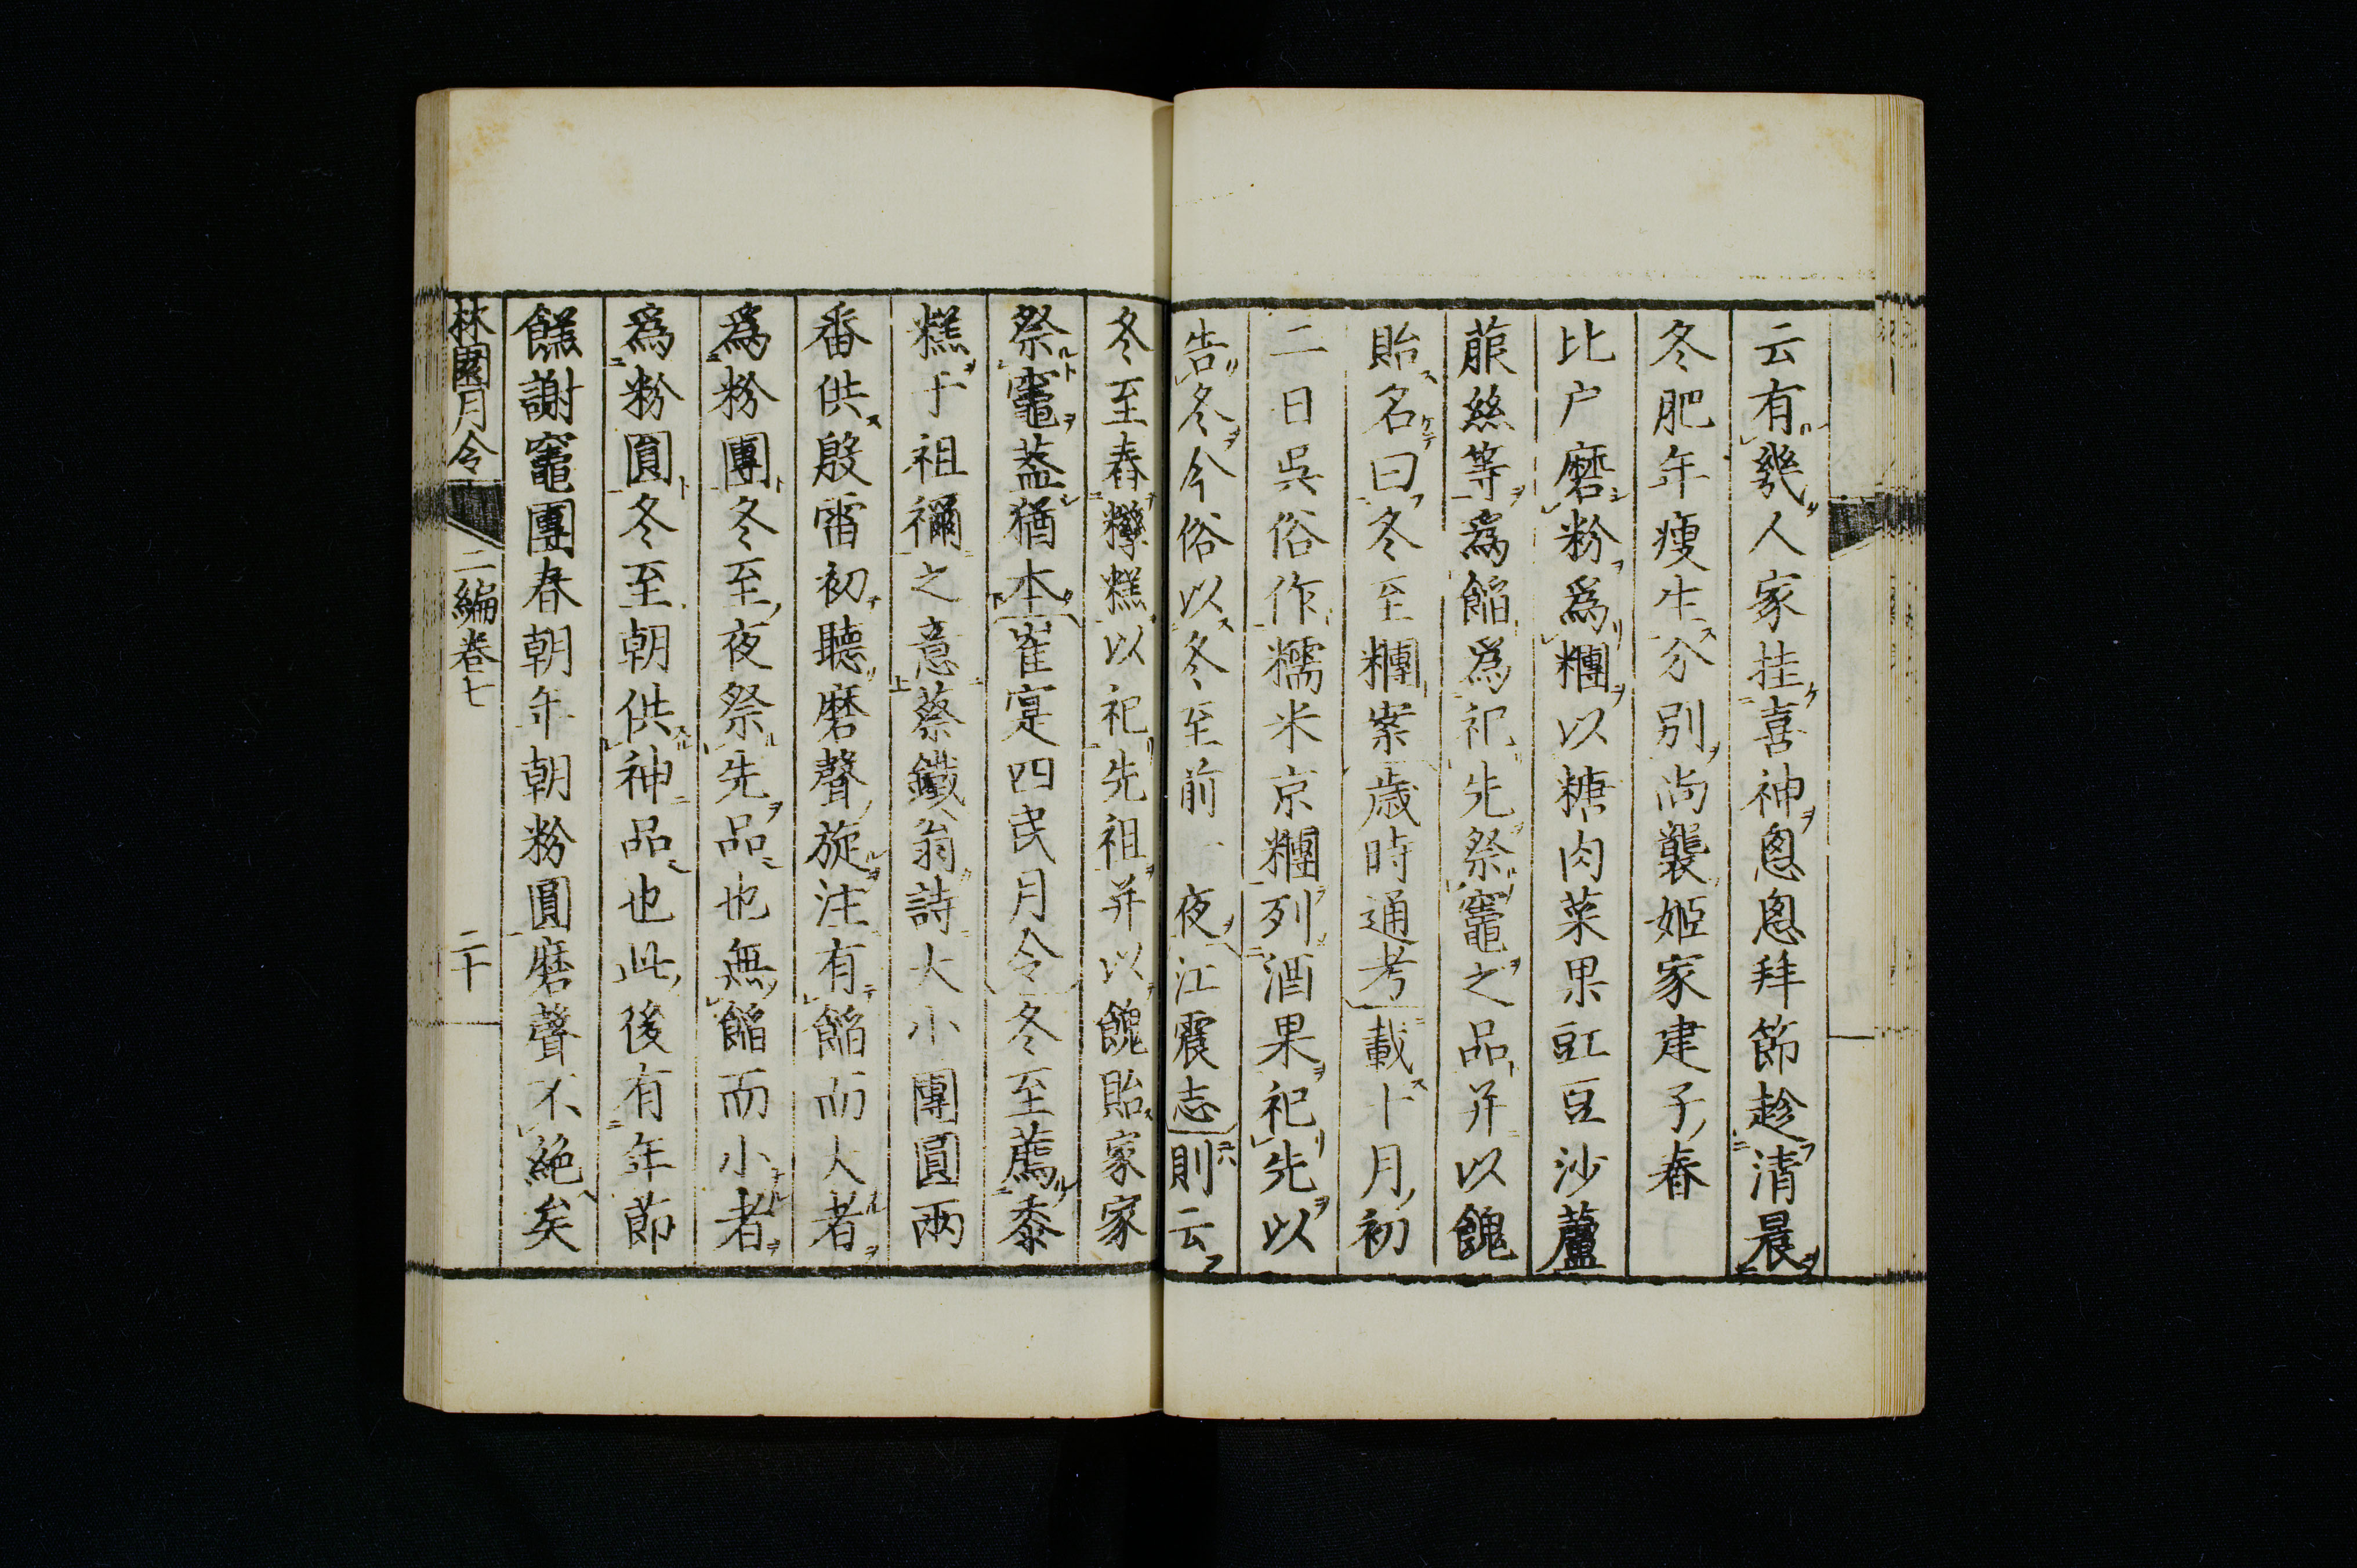 云有幾人家挂喜神匆匆拜節趁清晨
冬肥年瘦生分別尚襲姬家建子春
比户磨粉爲糰以糖肉菜果豇豆沙蘆
菔絲等爲餡爲祀先祭竈之品并以餽
貽名曰冬至糰案歲時通考載十月初
二日吳俗作糯米京糰列酒果祀先以
告冬今俗以冬至前一夜江震志則云
冬至舂糕以祀先祖并以餽貽家家
祭竈蓋猶本崔寔四民月令冬至薦黍
糕于祖禰之意蔡鐵翁詩大小團圓兩
番供殷雷初聽磨聲旋注有餡而大者
爲粉團冬至夜祭先品也無餡而小者
爲粉圓冬至朝供神品也此後有年節
餻謝竈團春朝年朝粉圓磨聲不絶矣
林園月令 二編卷七 二十